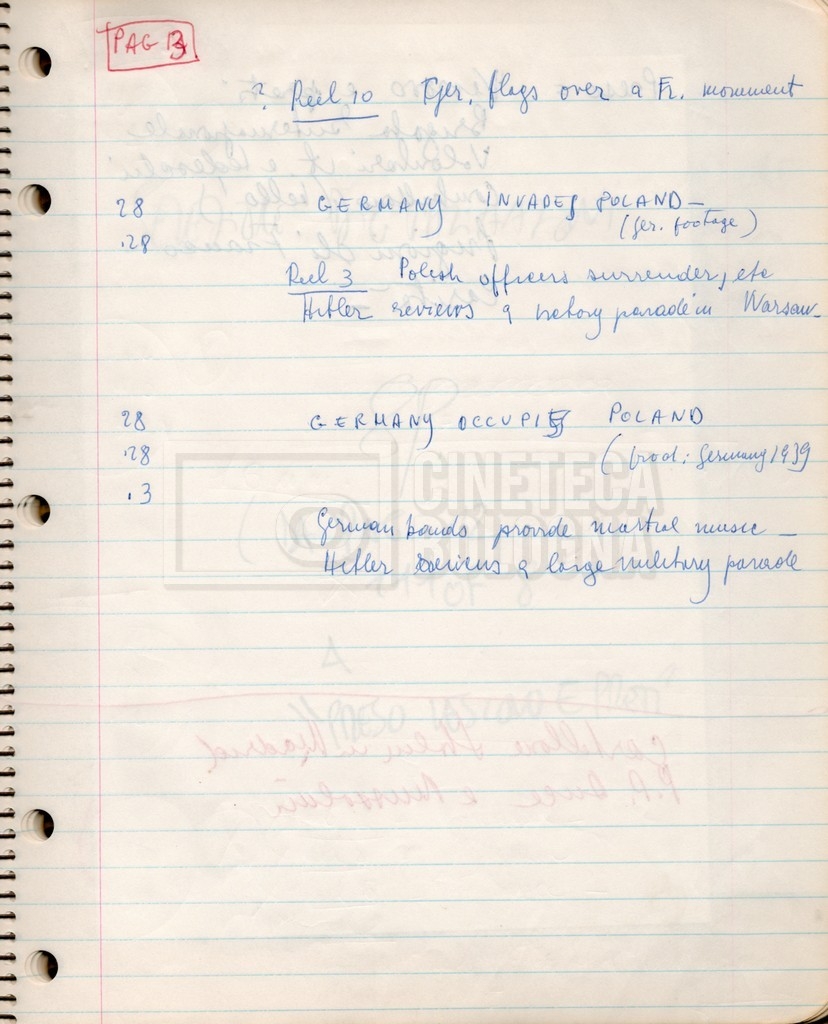 PAG 3
? Reel 10 Ger. flags over a Fr. monument
28 GERMANY INVADES POLAND—
(Ger. footage)
.28
Reel 3 Polish officers surrender, etc
Hitler reviews a victory parade in Warsaw—
28 GERMANY OCCUPIES POLAND
.28 (prod: Germany 1939
.3
German bands provide martial music —
Hitler reviews a large military parade
CINETECA
BOLOGNA